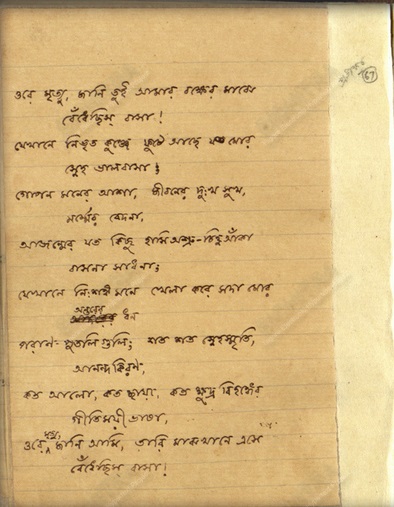 ওরে মৃত্যু, জানি তুই আমার বক্ষের মাঝে
বেঁধেছিস বাসা!
যেখানে নিভৃত কুঞ্জে ফুটে আছে যত মোর
স্নেহ ভালবাসা;
গোপন মনের আশা, জীবনের দুঃখ সুখ,
মর্ম্মের বেদনা,
আজন্মের যত কিছু হাসিঅশ্রু-চিহ্নআঁকা
বাসনা সাধনা;
যেখানে নিঃশঙ্কমনে খেলা করে সদা মোর
অন্তরের ধন
পরাণ পুতলি গুলি; শত শত স্নেহস্মৃতি,
আনন্দকিরণ,
কত আলো, কত ছায়া, কত ক্ষুদ্র বিহঙ্গের
গীতিময়ী ভাষা,
ওরে মৃত্যু, জানি আমি, তারি মাঝখানে এসে
বেঁধেছিস বাসা!
167